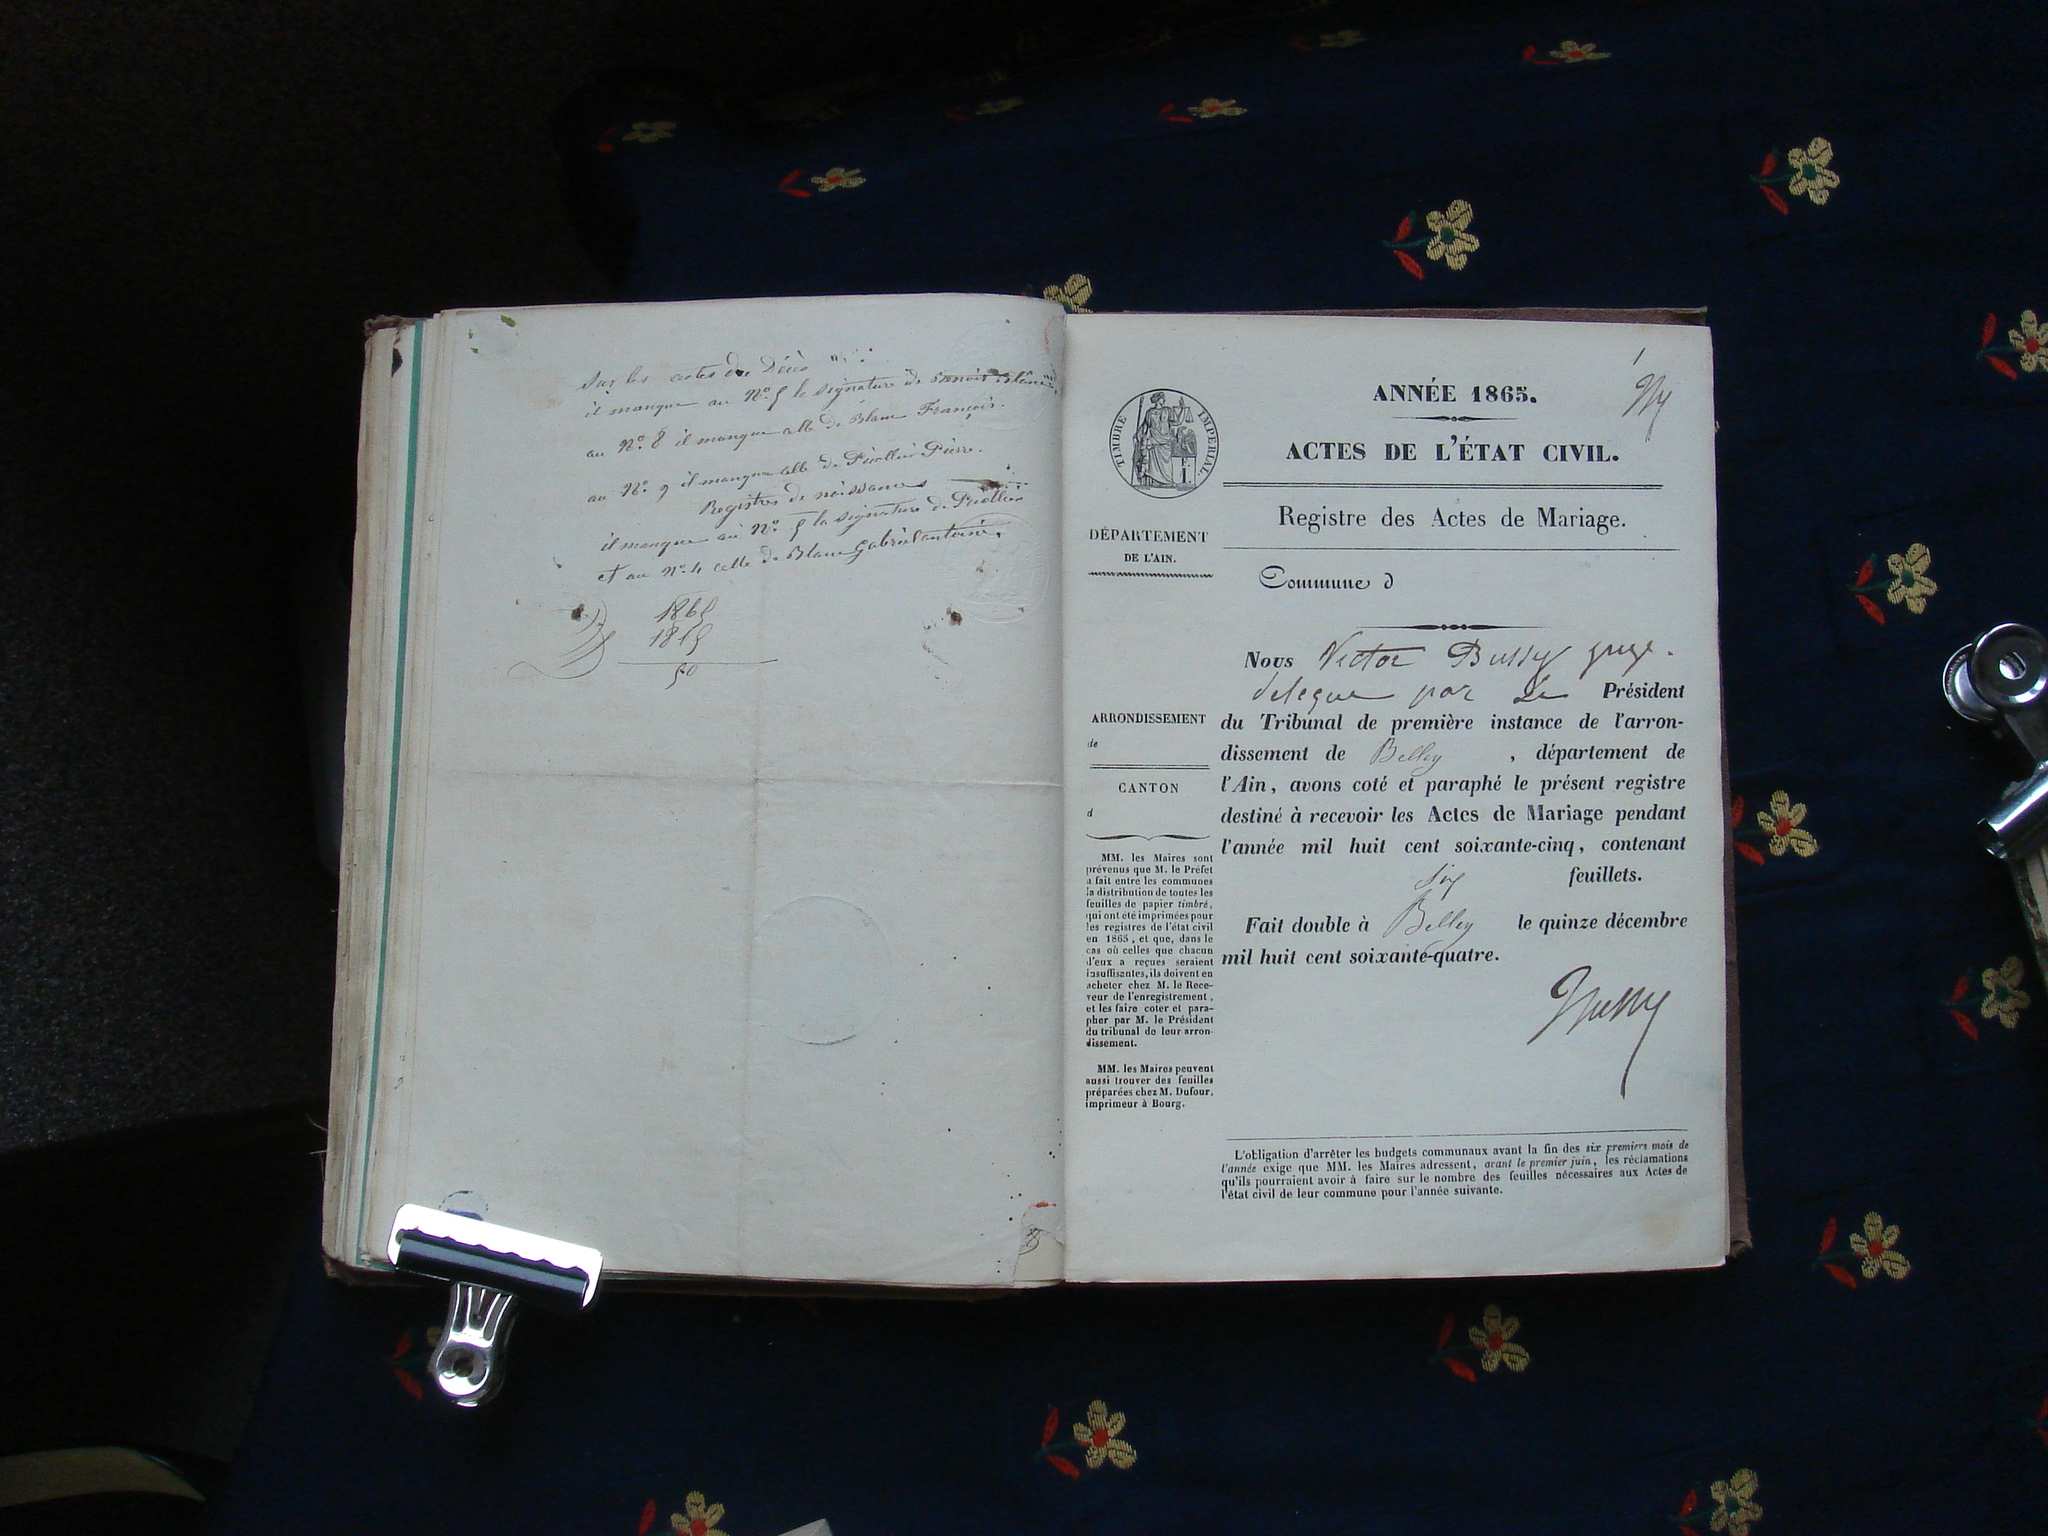 Sur les actes de Décès
il manque au Nº 5 la signature de Benoit Blanc
au Nº 8 il manque celle de Blanc François.
au Nº 9 il manque celle de Pierre.
Registres de naissances
il manque au Nº 5 la signature de
et au Nº 4 celle de Blanc Gabriel antoine.
1865
1815
50
1
ANNÉE 1865.
ACTES DE L'ÉTAT CIVIL.
Registre des Actes de Mariage.
TIMBRE IMPERIAL
DÉPARTEMENT
DE L'AIN.
Commune d
Nous Victor Bussy juge
delegue par Le Président
du Tribunal de première instance de l'arron-
dissement de Belley , département de
l'Ain, avons coté et paraphé le présent registre
destiné à recevoir les Actes de Mariage pendant
l'année mil huit cent soixante-cinq, contenant
six feuillets.
Fait double à Belley le quinze décembre
mil huit cent soixante-quatre.
Bussy
ARRONDISSEMENT
de
CANTON
d
MM. les Maires sont
prévenus que M. le Préfet
a fait entre les communes
la distribution de toutes les
feuilles de papier timbré,
qui ont été imprimées pour
les registres de l'état civil
en 1865, et que, dans le
cas où celles que chacun
d'eux a reçues seraient
insuffisantes, ils doivent en
acheter chez M. le Rece-
veur de l'enregistrement,
et les faire coter et para-
pher par M. le Président
du tribunal de leur arron-
dissement.
MM. les Maires peuvent
aussi trouver des feuilles
préparées chez M. Dufour,
imprimeur à Bourg.
L'obligation d'arrêter les budgets communaux avant la fin des six premiers mois de
l'année exige que MM. les Maires adressent, avant le premier juin, les réclamations
qu'ils pourraient avoir à faire sur le nombre des feuilles nécessaires aux Actes de
l'état civil de leur commune pour l'année suivante.